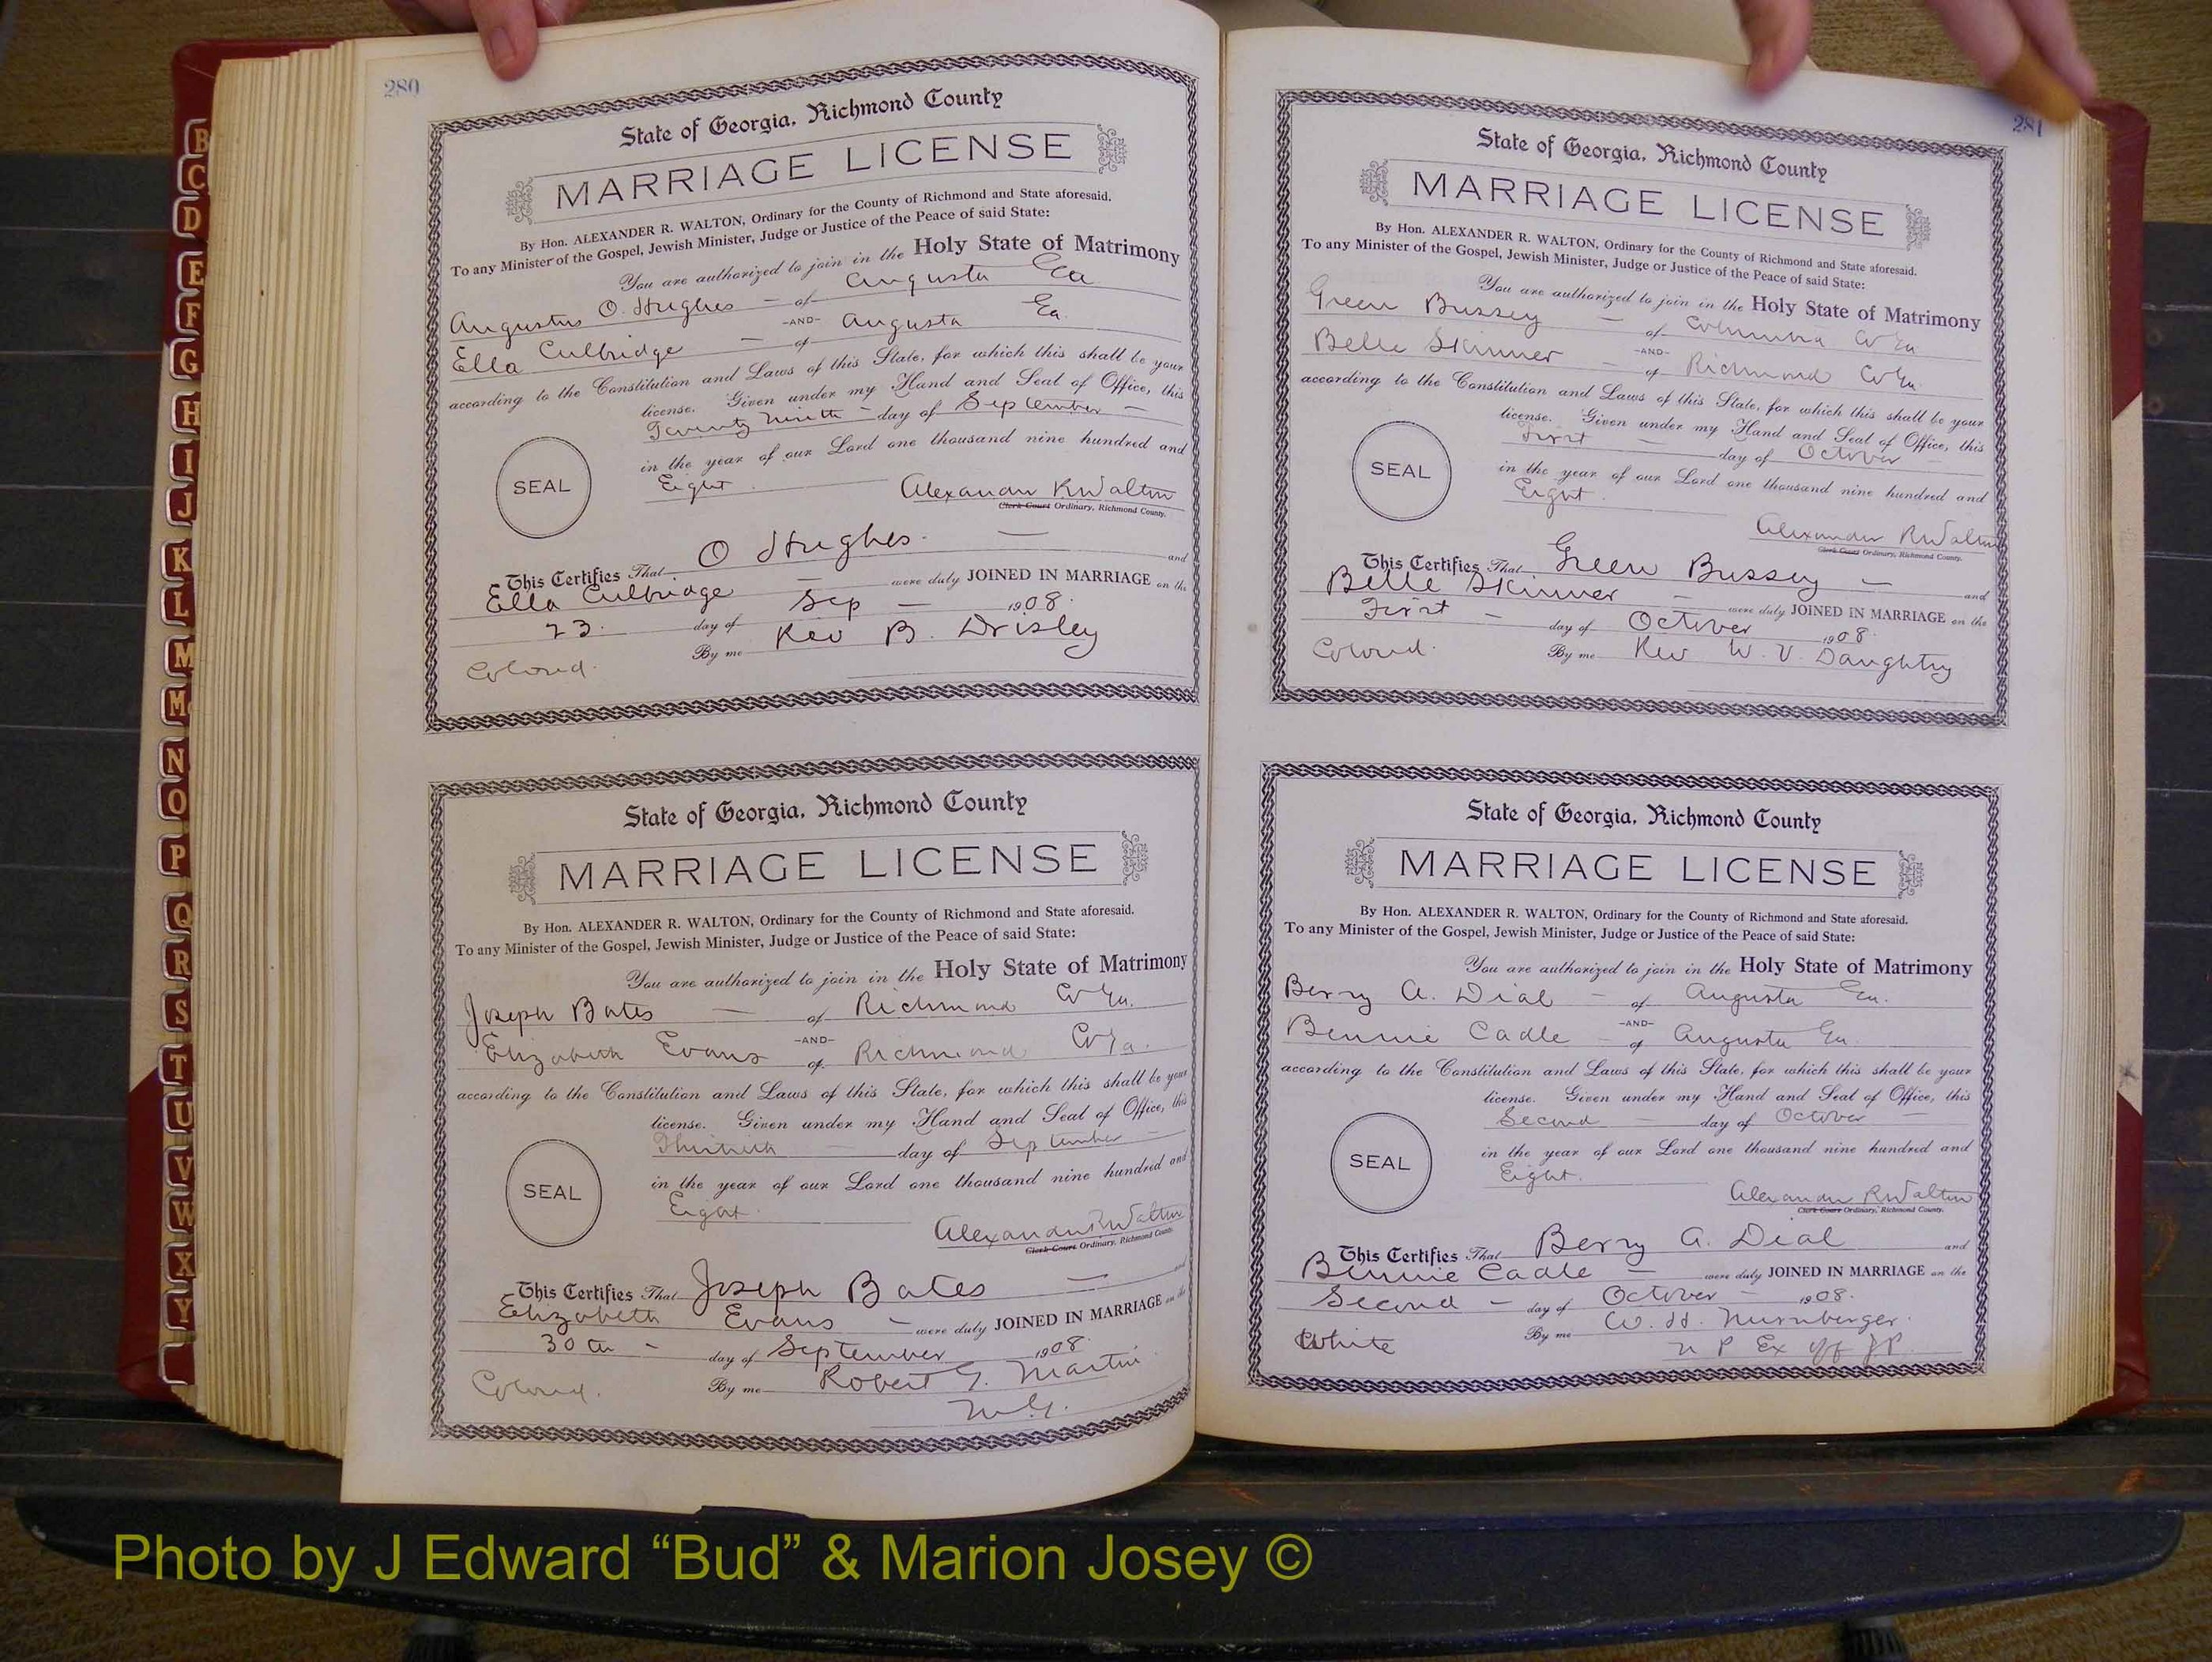 280
State of Georgia, Richmond County
MARRIAGE LICENSE
By Hon. ALEXANDER R. WALTON, Ordinary for the County of Richmond and State aforesaid.
To any Minister of the Gospel, Jewish Minister, Judge or Justice of the Peace of said State:
You are authorized to join in the Holy State of Matrimony
Augustus O. Hughes - of Augusta Ga
-AND-
Ella Culbridge - of Augusta Ga.
according to the Constitution and Laws of this State, for which this shall be your
license. Given under my Hand and Seal of Office, this
Twenty Ninth - day of September -
in the year of our Lord one thousand nine hundred and
Eight.
SEAL
Alexander R Walton
Clerk Court Ordinary, Richmond County.
This Certifies That O Hughes. - and
Ella Culbridge - were duly JOINED IN MARRIAGE on the
23. day of Sep - 1908.
Colored. By me Rev B. Drisley
State of Georgia, Richmond County
MARRIAGE LICENSE
By Hon. ALEXANDER R. WALTON, Ordinary for the County of Richmond and State aforesaid.
To any Minister of the Gospel, Jewish Minister, Judge or Justice of the Peace of said State:
You are authorized to join in the Holy State of Matrimony
Joseph Bates - of Richmond Co Ga.
-AND-
Elizabeth Evans of Richmond Co Ga.
according to the Constitution and Laws of this State, for which this shall be your
license. Given under my Hand and Seal of Office, this
Thirtieth - day of September -
in the year of our Lord one thousand nine hundred and
Eight.
SEAL
Alexander R Walton
Clerk Court Ordinary, Richmond County.
This Certifies That Joseph Bates - and
Elizabeth Evans - were duly JOINED IN MARRIAGE on the
30th - day of September 1908
Colored. By me Robert G. Martin
M.G.
281
State of Georgia, Richmond County
MARRIAGE LICENSE
By Hon. ALEXANDER R. WALTON, Ordinary for the County of Richmond and State aforesaid.
To any Minister of the Gospel, Jewish Minister, Judge or Justice of the Peace of said State:
You are authorized to join in the Holy State of Matrimony
Green Bussey - of Columbia Co Ga
-AND-
Belle Skinner - of Richmond Co Ga.
according to the Constitution and Laws of this State, for which this shall be your
license. Given under my Hand and Seal of Office, this
First - day of October -
in the year of our Lord one thousand nine hundred and
Eight.
SEAL
Alexander R Walton
Clerk Court Ordinary, Richmond County.
This Certifies That Green Bussey - and
Belle Skinner - were duly JOINED IN MARRIAGE on the
First - day of October 1908.
Colored. By me Rev W. V. Daughtry
State of Georgia, Richmond County
MARRIAGE LICENSE
By Hon. ALEXANDER R. WALTON, Ordinary for the County of Richmond and State aforesaid.
To any Minister of the Gospel, Jewish Minister, Judge or Justice of the Peace of said State:
You are authorized to join in the Holy State of Matrimony
Berry A. Dial - of Augusta Ga.
-AND-
Bennie Cadle - of Augusta Ga.
according to the Constitution and Laws of this State, for which this shall be your
license. Given under my Hand and Seal of Office, this
Second - day of October -
in the year of our Lord one thousand nine hundred and
Eight.
SEAL
Alexander R Walton
Clerk Court Ordinary, Richmond County.
This Certifies That Berry A. Dial and
Bennie Cadle - were duly JOINED IN MARRIAGE on the
Second - day of October - 1908.
White By me W. H. Nurnberger.
N P Ex Off J P.
B
C
D
E
F
G
H
I
J
K
L
M
Mc
N
O
P
Q
R
S
T
U
V
W
X
Y
Photo by J Edward “Bud” & Marion Josey ©